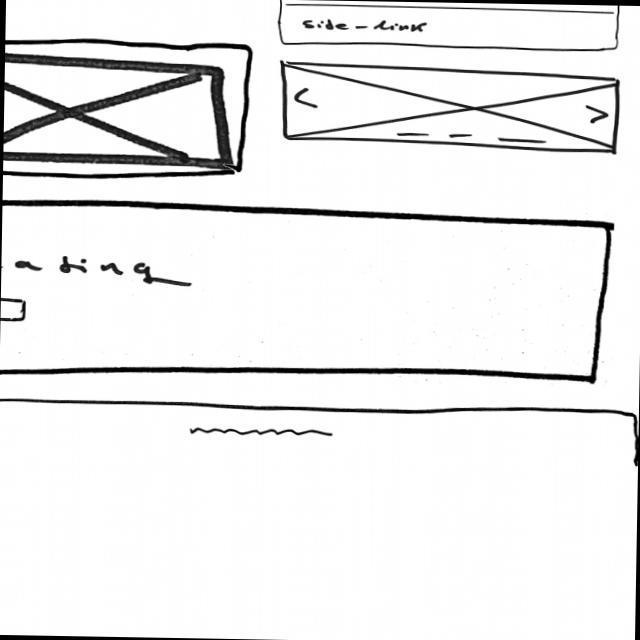 side-link
<
>
ating